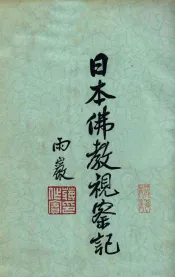 日本佛教視察記
雨巖